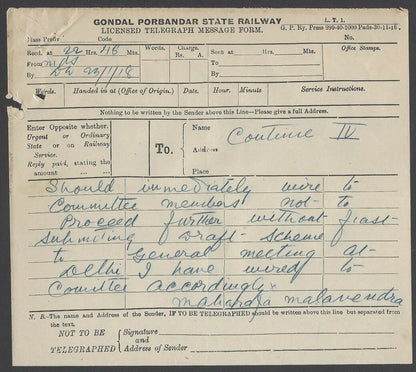 GONDAL PORBANDAR STATE RAILWAY
LICENSED TELEGRAPH MESSAGE FORM.
L. T. 1.
G. P. Ry. Press 299-40-1000 Pads-30-11-16.
Class Prefix Code
No.
Recd. at 22 Hrs. 18 M.
Words.
Charge.
Sent at Hrs. M.
Office Stamps.
From
Rs. A.
To
By 22/1/18
By
Words. Handed in at (Office of Origin). Date. Hour. Minute Service Instructions.
Nothing to be written by the Sender above this Line—Please give a full Address.
Enter Opposite whether.
Urgent or Ordinary
State or on Railway
Service.
Reply paid, stating the
amount
To.
Name
Address
Place
Continue IV
Should immediately wire to
Committee members not to
Proceed further without first-
submitting Draft- Scheme
to General meeting at-
Delhi I have wired to
Comittee accordingly
Maharaja Malavendra
N. B.-The name and Address of the Sender, IF TO BE TELEGRAPHED should be written above this line but separated from
the text.
NOT TO BE
TELEGRAPHED
Signature
and
Address of Sender